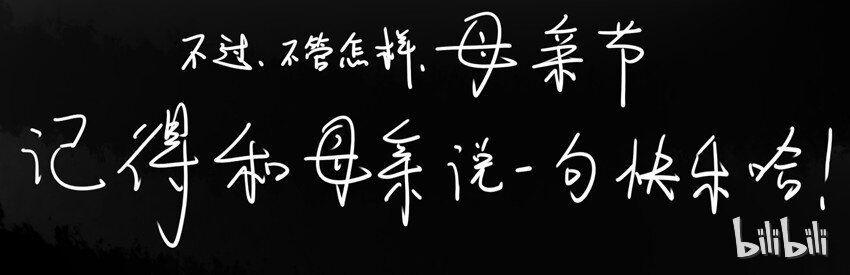 不过、不管怎样、母亲节
记得和母亲说一句快乐哈!
bilibili